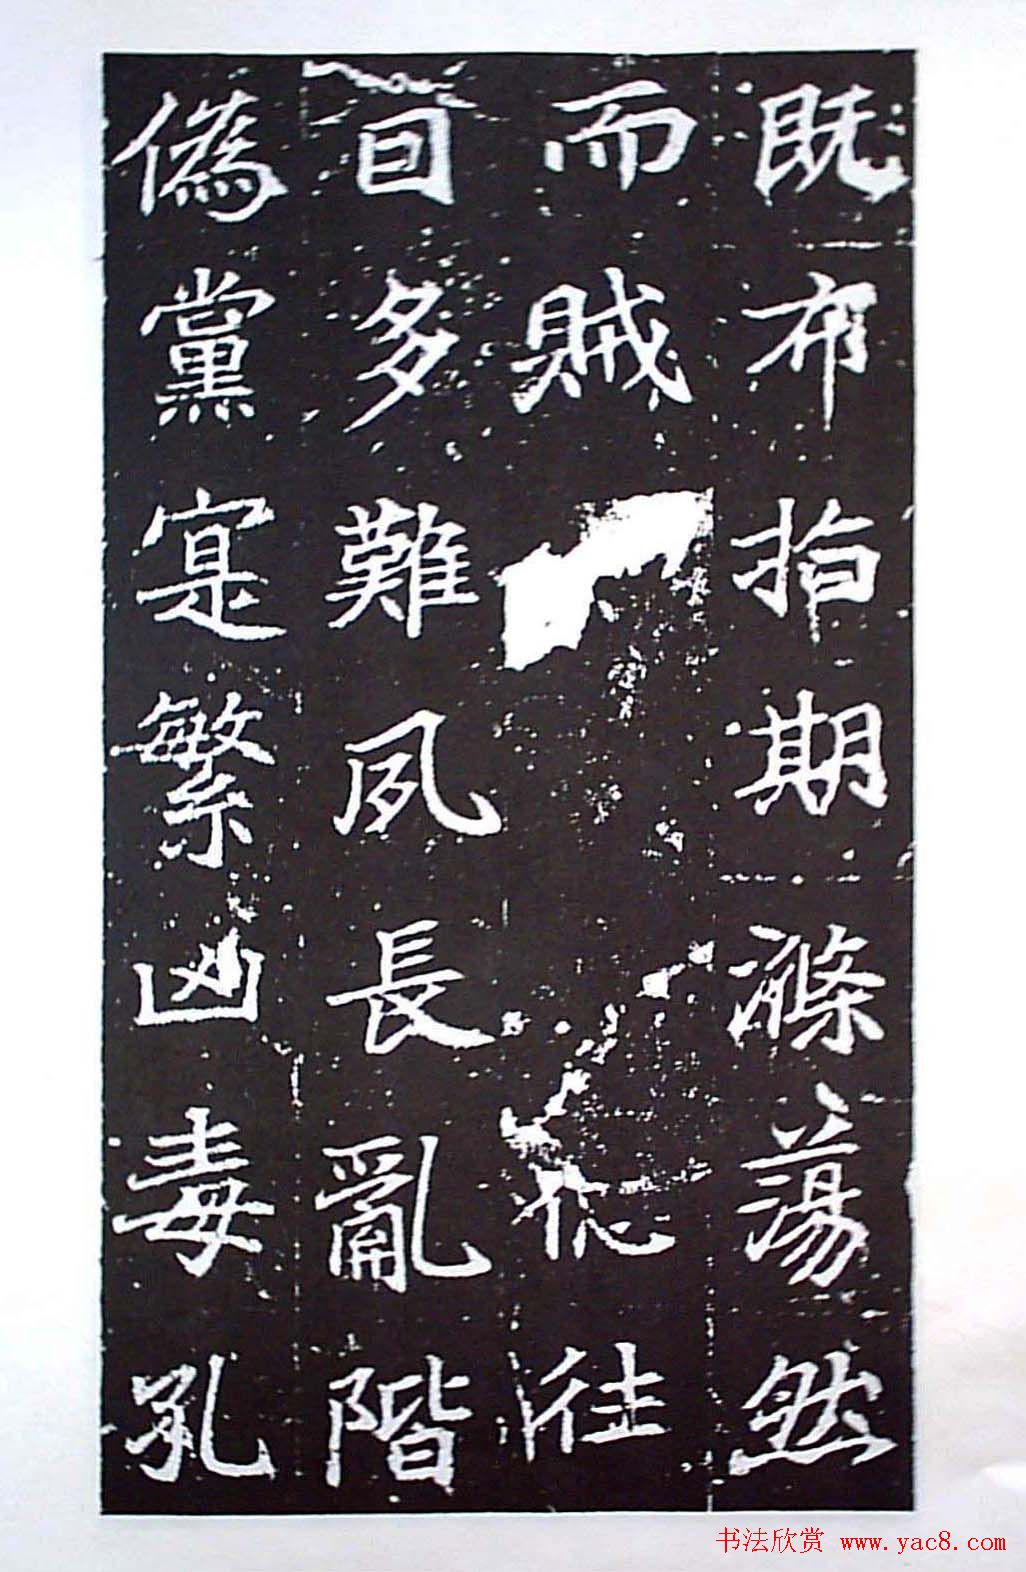 既布指期滌蕩然
而賊往
因多難夙長亂階
偽黨寔繁凶毒孔
书法欣赏 www.yac8.com